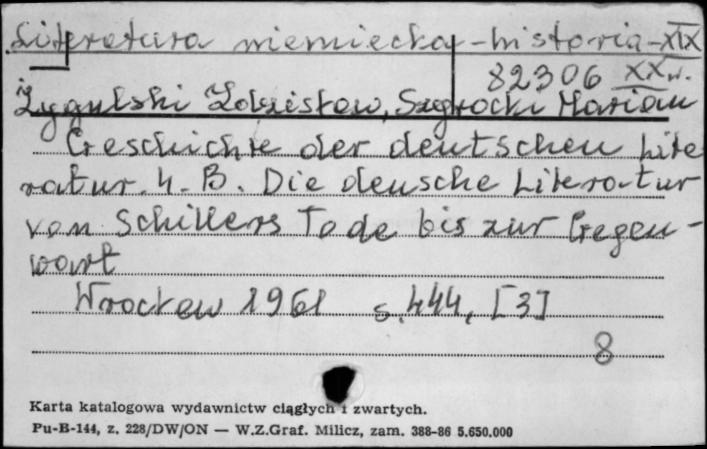 Literatura niemiecka - historia - XIX
82306 XX w.
Żygulski Zdzisław, Szyrocki Marian
Geschichte der deutschen Lite
ratur. 4. B. Die deusche Literatur
von Schillers Tode bis zur Gegen-
wart
Wrocław 1961 s. 444, [3]
8
Karta katalogowa wydawnictw ciągłych i zwartych.
Pu-B-144, z. 228/DW/ON — W.Z.Graf. Milicz, zam. 388-86 5.650.000